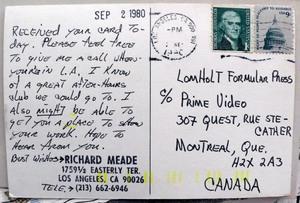 SEP 2 1980
RECEIVED YOUR CARD TO-
DAY. PLEASE FEEL FREE
TO GIVE ME A CALL WHEN
YOU'RE IN L.A. I KNOW
OF A GREAT AFTER-HOURS
CLUB WE COULD GO TO. I
ALSO MIGHT BE ABLE TO
GET YOU A PLACE TO SHOW
YOUR WORK. HOPE TO
HEAR FROM YOU.
BEST WISHES
RICHARD MEADE
1759½ EASTERLY TER.
LOS ANGELES, CA 90026
TELE. (213) 662-6946
LOS ANGELES, CA
PM
LOMHOLT FORMULAR PRESS
C/O PRIME VIDEO
307 QUEST, RUE STE-
CATHER
MONTREAL, QUE.
H2X 2A3
CANADA